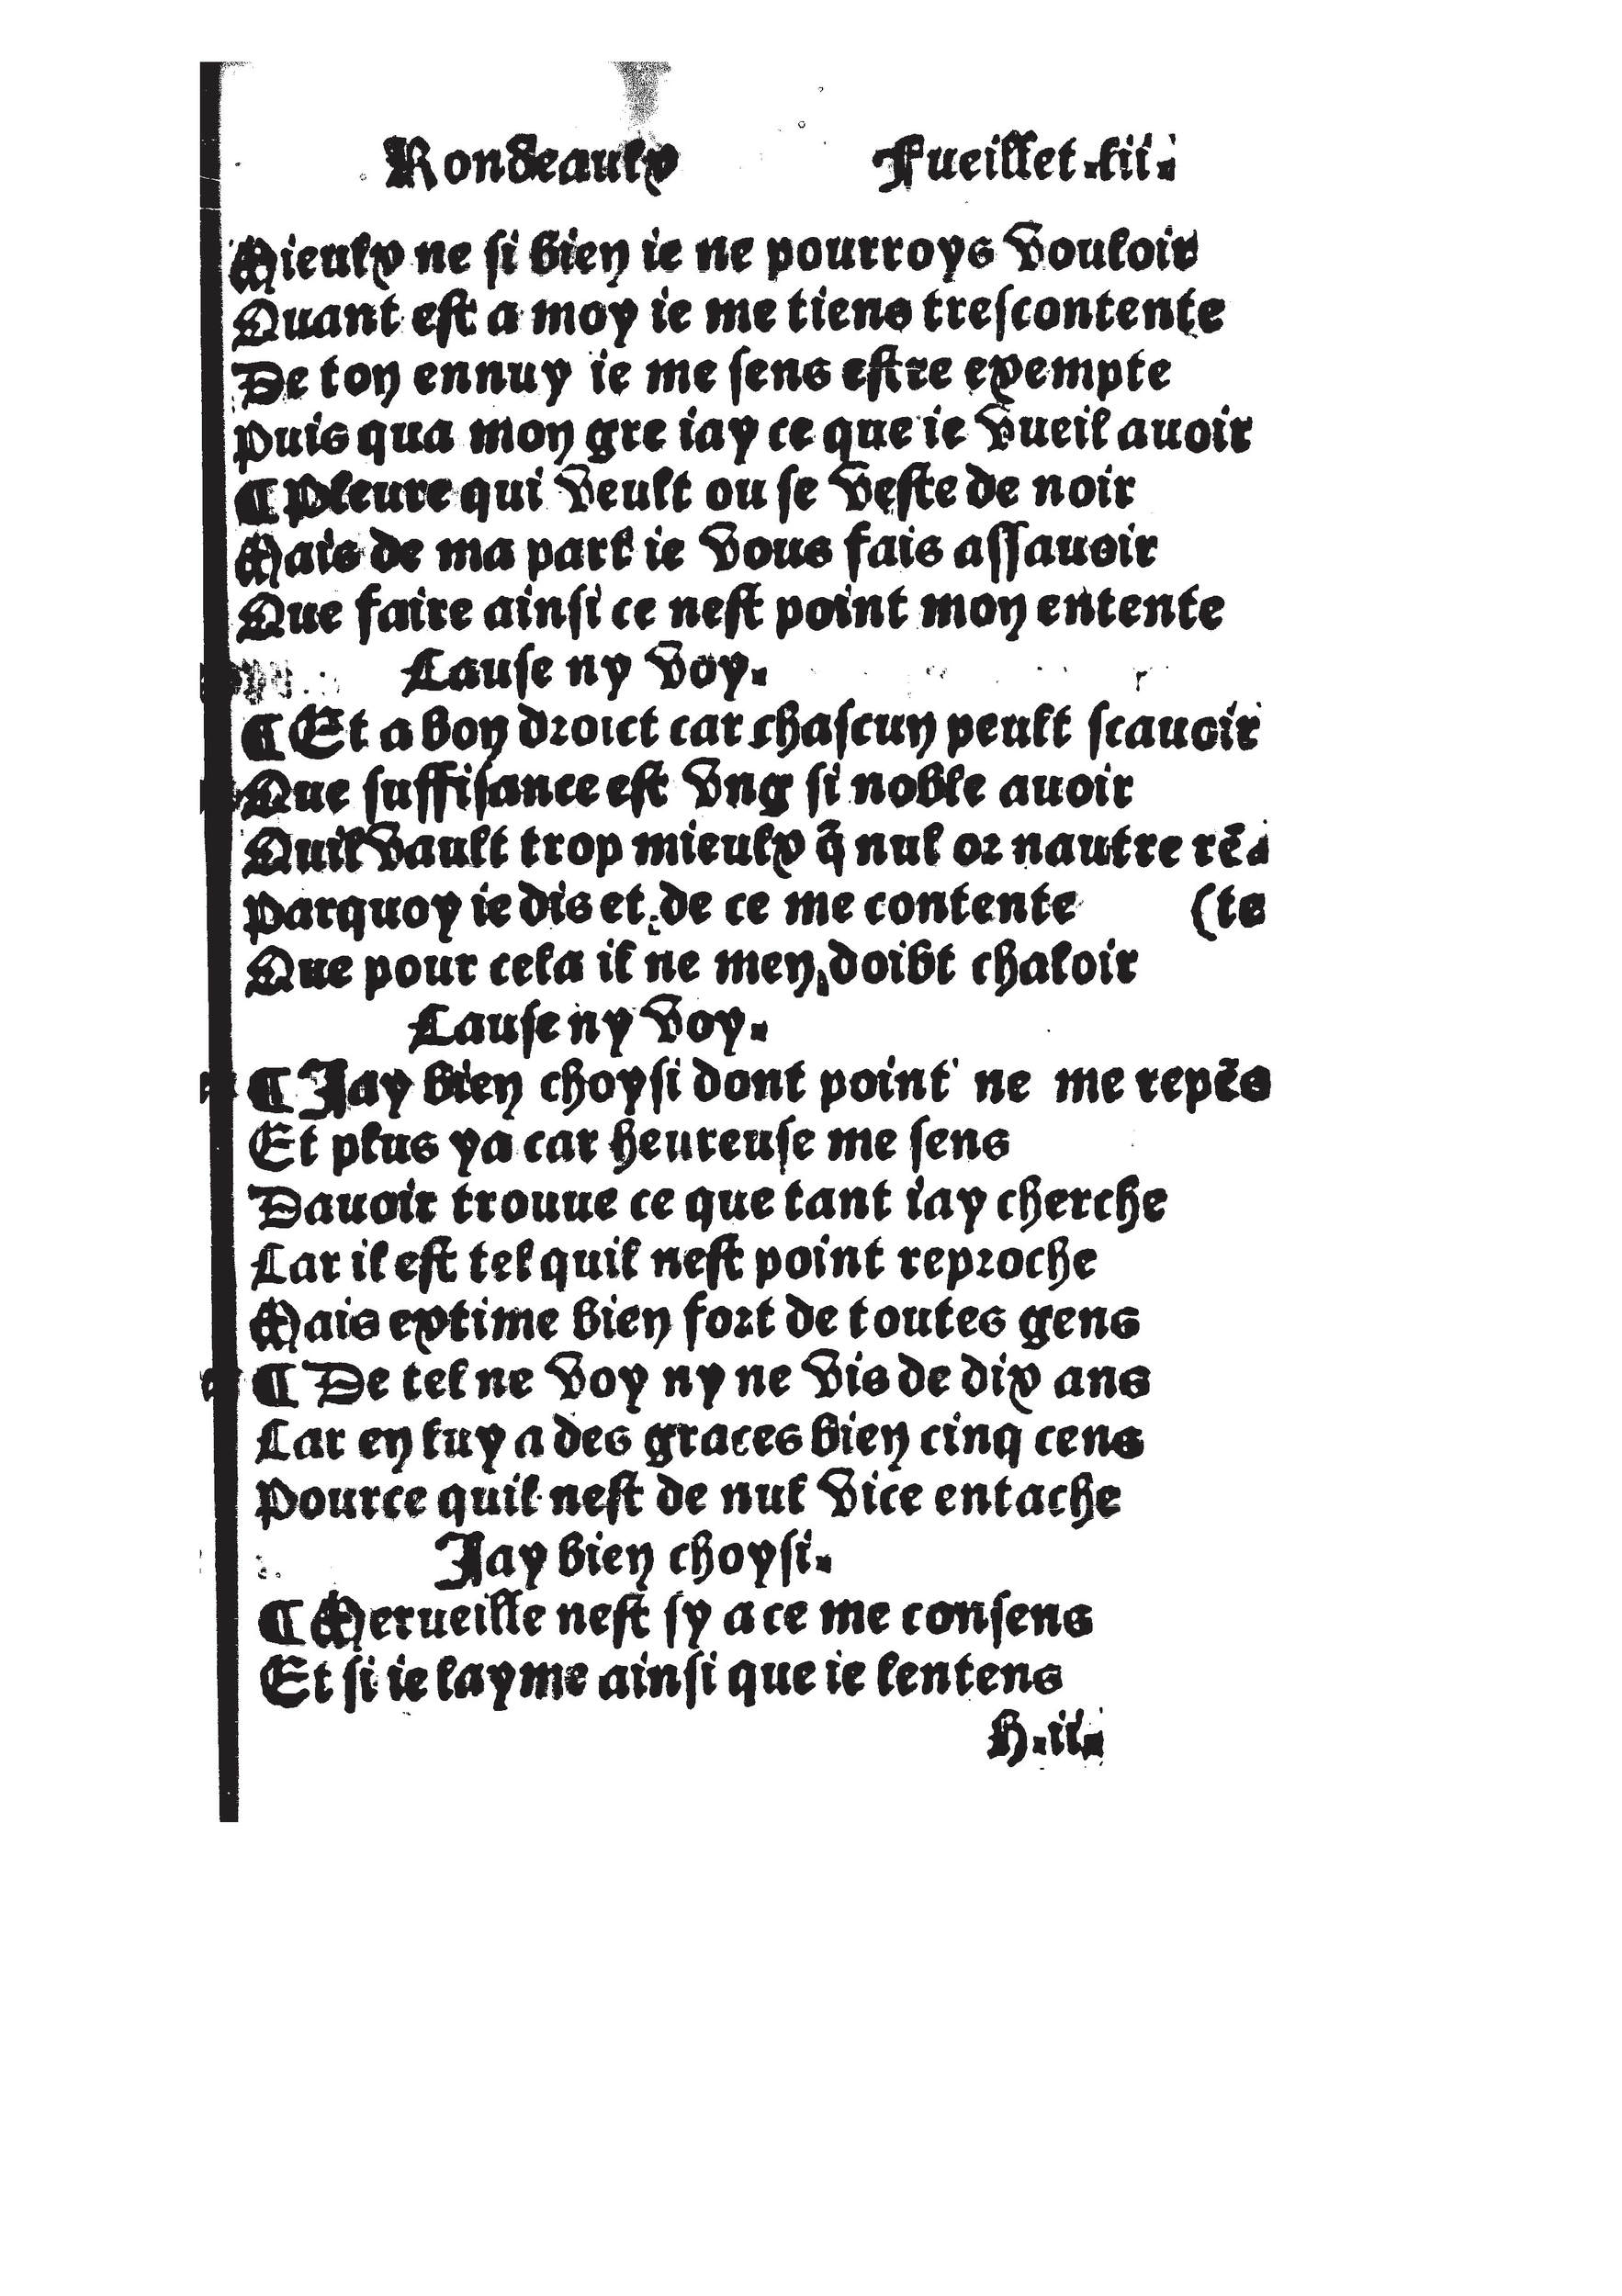 Rondeaulx Fueillet .lii.
Mieulx ne si bien ie ne pourroys vouloir
Quant est a moy ie me tiens trescontente
De ton ennuy ie me sens estre exempte
Puis qua mon gre iay ce que ie vueil auoir
¶ Pleure qui veult ou se veste de noir
Mais de ma part ie vous fais assauoir
Que faire ainsi ce nest point mon entente
Cause ny voy.
¶ Et a bon droict car chascun peult scauoir
Que suffisance est vng si noble auoir
Quil vault trop mieulx q̃ nul or nautre rẽ
Parquoy ie dis et de ce me contente (te
Que pour cela il ne men doibt chaloir
Cause ny voy.
¶ Jay bien choysi dont point ne me repẽs
Et plus ya car heureuse me sens
Dauoir trouue ce que tant iay cherche
Car il est tel quil nest point reproche
Mais extime bien fort de toutes gens
¶ De tel ne voy ny ne vis de dix ans
Car en luy a des graces bien cinq cens
Pource quil nest de nul vice entache
Jay bien choysi.
¶ Merueille nest sy a ce me consens
Et si ie layme ainsi que ie lentens
H.ii.